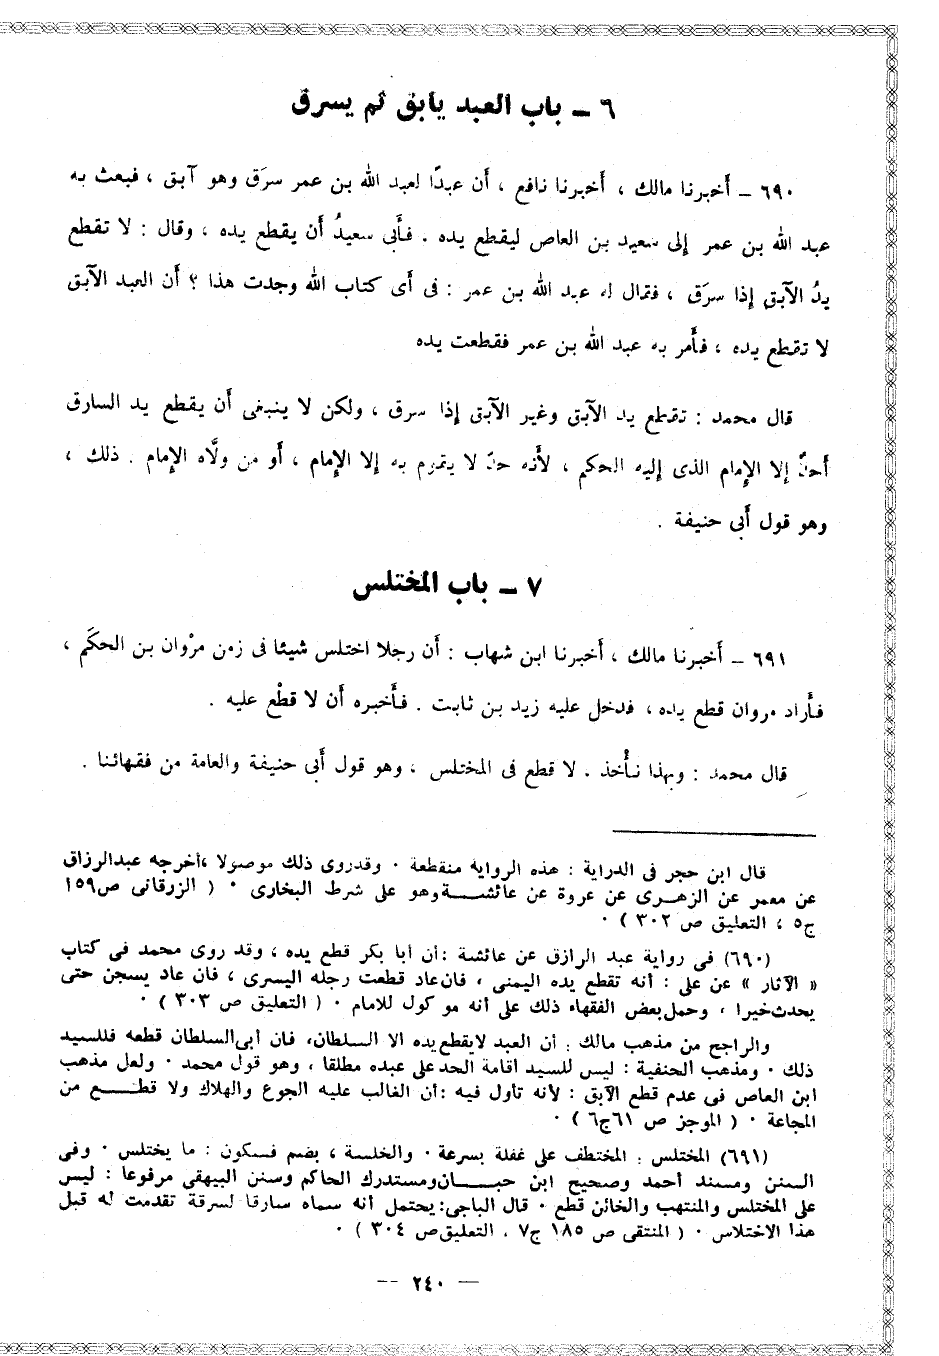 ٦ – باب العبد يأبق ثم يسرق
٦٩٠ – أخبرنا مالك ، أخبرنا نافع ، أن عبدًا لعبد الله بن عمر سرَق وهو آبق ، فبعث به
عبد الله بن عمر إلى سعيد بن العاص ليقطع يده . فأبى سعيدُ أن يقطع يده ، وقال : لا تقطع
يدُ الآبق إذا سرَق ، فقال له عبد الله بن عمر : فى أى كتاب الله وجدت هذا ؟ أن العبد الآبق
لا تقطع يده ، فأمر به عبد الله بن عمر فقطعت يده
قال محمد : تقطع يد الآبق وغير الآبق إذا سرق ، ولكن لا ينبغى أن يقطع يد السارق
أحدٌ إلا الإمام الذى إليه الحكم ، لأنه حدّ لا يقوم به إلا الإمام ، أو من ولَّاه الإمام . ذلك ،
وهو قول أبى حنيفة .
٧ – باب المختلس
٦٩١ – أخبرنا مالك ، أخبرنا ابن شهاب : أن رجلا اختلس شيئا فى زمن مرْوان بن الحكَم ،
فأراد مروان قطع يده ، فدخل عليه زيد بن ثابت . فأخبره أن لا قطْع عليه .
قال محمد : وبهذا نأْخذ . لا قطع فى المختلس ، وهو قول أبى حنيفة والعامة من فقهائنا .
قال ابن حجر فى الدراية : هذه الرواية منقطعة ٠ وقدروى ذلك موصولا ،أخرجه عبدالرزاق
عن معمر عن الزهـرى عن عروة عن عائشـــة وهو على شرط البخارى ٠ ( الزرقانى ص١٥٩
ج٥ ، التعليق ص ٣٠٢ ) ٠
(٦٩٠) فى رواية عبد الرازق عن عائشة :أن أبا بكر قطع يده ، وقد روى محمد فى كتاب
« الآثار » عن على : أنه تقطع يده اليمنى ، فان عاد قطعت رجله اليسرى ، فان عاد يسجن حتى
يحدث خيرا ، وحمل بعض الفقهاء ذلك على أنه موكول للامام ٠ ( التعليق ص ٣٠٣ ) ٠
والراجح من مذهب مالك : أن العبد لايقطع يده الا السلطان، فان أبى السلطان قطعه فللسيد
ذلك ٠ ومذهب الحنفية : ليس للسيد اقامة الحد على عبده مطلقا ، وهو قول محمد ٠ ولعل مذهب
ابن العاص فى عدم قطع الآبق : لأنه تأول فيه :أن الغالب عليه الجوع والهلاك ولا قطـــع من
المجاعة ٠ ( الموجز ص ٦١ج٦ ) ٠
(٦٩١) المختلس : المختطف على غفلة بسرعة ٠ والخلسة ، بضم فسكون : ما يختلس ٠ وفى
السنن ومسند أحمد وصحيح ابن حبـــان ومستدرك الحاكم وسنن البيهقى مرفوعا : ليس
على المختلس والمنتهب والخائن قطع ٠ قال الباجى: يحتمل أنه سماه سارقا لسرقة تقدمت له قبل
هذا الاختلاس ٠ ( المنتقى ص ١٨٥ ج٧ ، التعليق ص ٣٠٤ ) ٠
— ٢٤٠ —